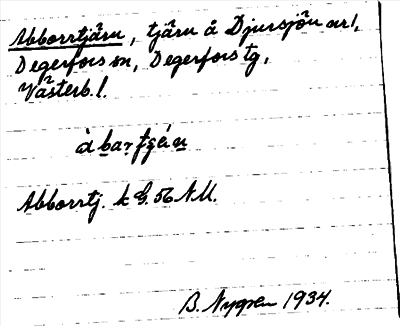 Abborrtjärn, tjärn å Djursjön arl,
Degerfors sn, Degerfors tg,
Västerb. l.
Abborrtj. k G. 56 N.M.
B. Nygren 1934.